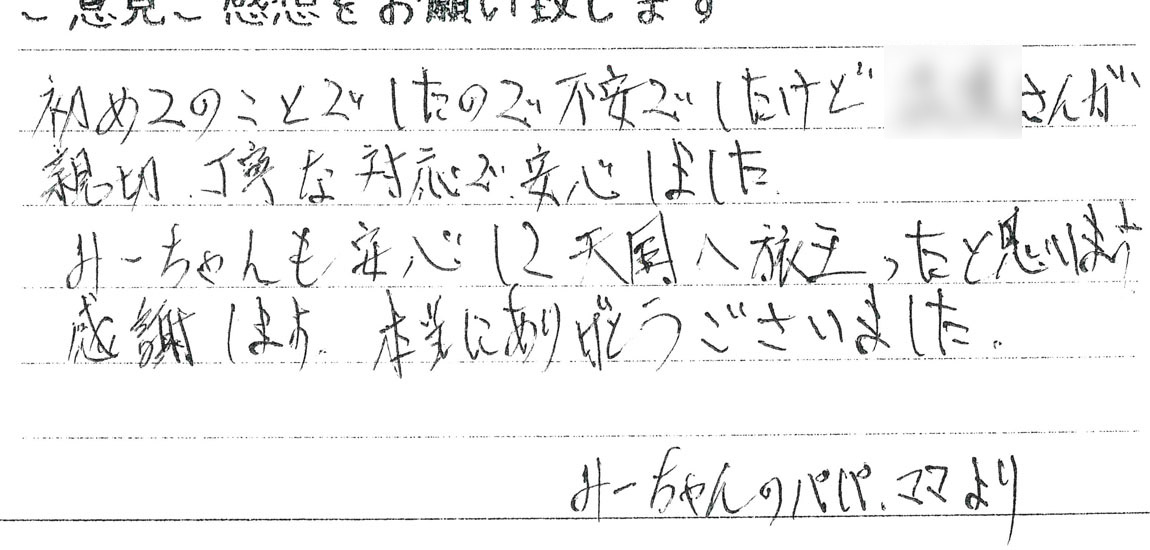 ご意見ご感想をお願い致します
初めてのことでしたので不安でしたけど さんが
親切、丁寧な対応で、安心しました。
みーちゃんも安心して天国へ旅立ったと思います
感謝します。本当にありがとうございました。
みーちゃんのパパ、ママより